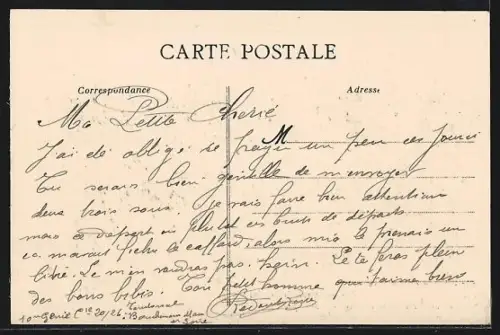 CARTE POSTALE
Correspondance
Adresse
Ma Petite Cherie
M
J'ai été obligé de frayer un peu ces jours ci
Tu serais bien gentille de m'envoyer
deux trois sous. Je vais faire bien attention
mais ce départ ou plutot ces bruits de départs
ca m'avait fichu le caffard, alors moi je prenais un
litre. Tu m'en voudras pas, hein. Je te feras plein
des bons bibis. Ton petit homme qui t'aime bien
10me Génie Cie 20/26